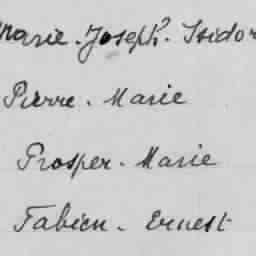 Marie. Joseph. Isidor
Pierre. Marie
Prosper. Marie
Fabien. Ernest